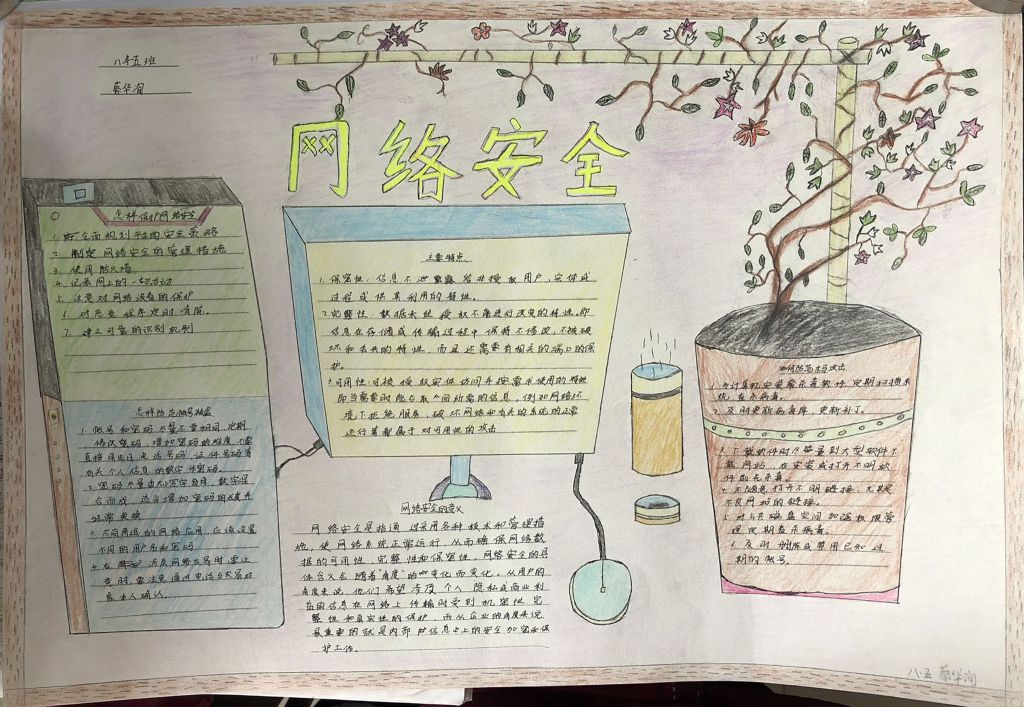 八年五班
蔡华洵
网络安全
怎样保护网络安全
1. 全面规划 安全策略
2. 制定 网络安全的管理措施
3. 使用防火墙
4. 记录网上的一切活动
5. 注意对网络设备的保护
6. 对 程序定时 清除。
7. 建立可靠的识别机制
怎样防范账号被盗
1. 帐号和密码尽量不要相同，定期
修改密码，增加密码的难度，不要
直接用生日，电话号码，证件号码等
有关个人信息的数字作密码。
2. 密码尽量由大小写字母，数字混
合而成，适当增加密码的长度并
经常更换
3. 不同用途的网络应用，应该设置
不同的用户名和密码
4. 在 涉及网络交易时，要注
意时，要注意通过电话与交易对
象本人确认。
主要特点
1. 保密性：信息不泄露给非授权用户，实体或
过程或供其利用的特性。
2. 完整性：数据未经授权不能进行改变的特性。即
信息在存储或传输过程中保持不修改，不被破
坏和丢失的特性，而且还需要有相关的端口的保
护。
3. 可用性：可被授权实体访问并按需求使用的特性
即当需要时能存取所需的信息，例如网络环
境下拒绝服务，破坏网络和有关的系统的正常
运行等都属于对可用性的攻击
网络安全的意义
网络安全是指通过采用各种技术和管理措
施，使网络系统正常运行，从而确保网络数
据的可用性，完整性和保密性，网络安全的具
体含义会随着"角度"的变化而变化。从用户的
角度来说，他们希望涉及个人隐私或商业利
益的信息在网络上传输时受到机密性完
整性和真实性的保护，而从企业的角度来说
最重要的就是内部 信息上的安全加密和保
护工作。
如何防范 攻击
1. 为计算机安装 杀毒软件，定期扫描系
统、查杀病毒。
2. 及时更新病毒库、更新补丁。
3. 下载软件时尽量到大型软件下
载网站，在安装或打开不明软
件前先杀毒。
4. 不随意打开不明链接，尤其是
不良网站的链接。
5. 对公共磁盘空间加强权限管
理定期查杀病毒。
6. 及时删除或禁用已知过
期的账号。
八.五 蔡华洵